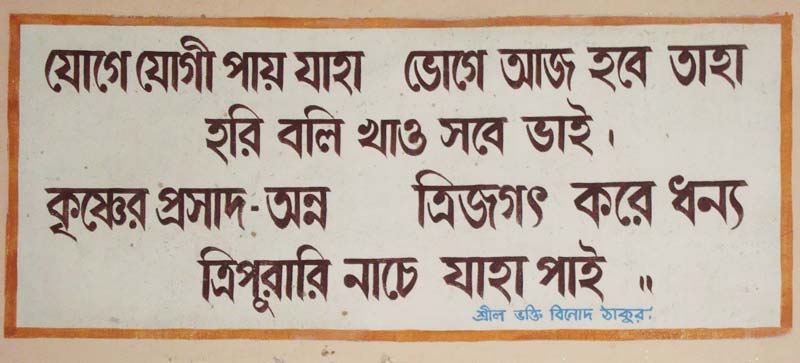 যোগে যোগী পায় যাহা ভোগে আজ হবে তাহা
হরি বলি খাও সবে ভাই।
কৃষ্ণের প্রসাদ-অন্ন ত্রিজগৎ করে ধন্য
ত্রিপুরারি নাচে যাহা পাই ॥
শ্রীল ভক্তি বিনোদ ঠাকুর।